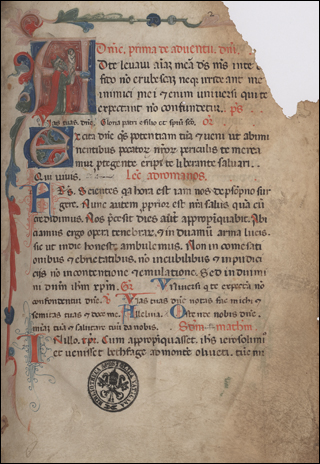 Dnica prima de adventu. dni.
Ad te levavi aiam meā ds ms in te
fido nō erubescā neqz irride ant me
inimici mei etenim universi qui te
expectant nō confundetur. ps
Vias tuas dne. Gloria patri & filio et spui sco. or
Excita dne qs potentiam tuā & veni ut ab immi
nentibus peccatorum nrorum periculis te merea
mur protegente eripi te liberante salvari.
Qui vivis. Lec ad romanos.
Fres. Scientes qa hora est iam nos de sompno sur
gere. Nunc autem propior est nra salus quā cū
credidimus. Nox precessit dies aūt appropiquabit. Abi
ciamus ergo opera tenebrarum, & induamur arma lucis.
sic ut in die honeste ambulemus. Non in comesati
onibus & ebrietatibus, nō in cubilibus & impudici
ciis nō in contentione & emulatione. Sed induimi
ni dnm ihm xpm. Gr Universi qui te expectāt nō
confundentur dne. V Vias tuas dne notas fac michi &
semitas tuas edoce me. Alleluia. Ostende nobis dne.
miam tuā & salutare tuū da nobis. Scdm matheū
In illo tpr. Cum appropiquasset ihs ierosolimis
et venisset bethfage ad montē oliveti. tūc mi